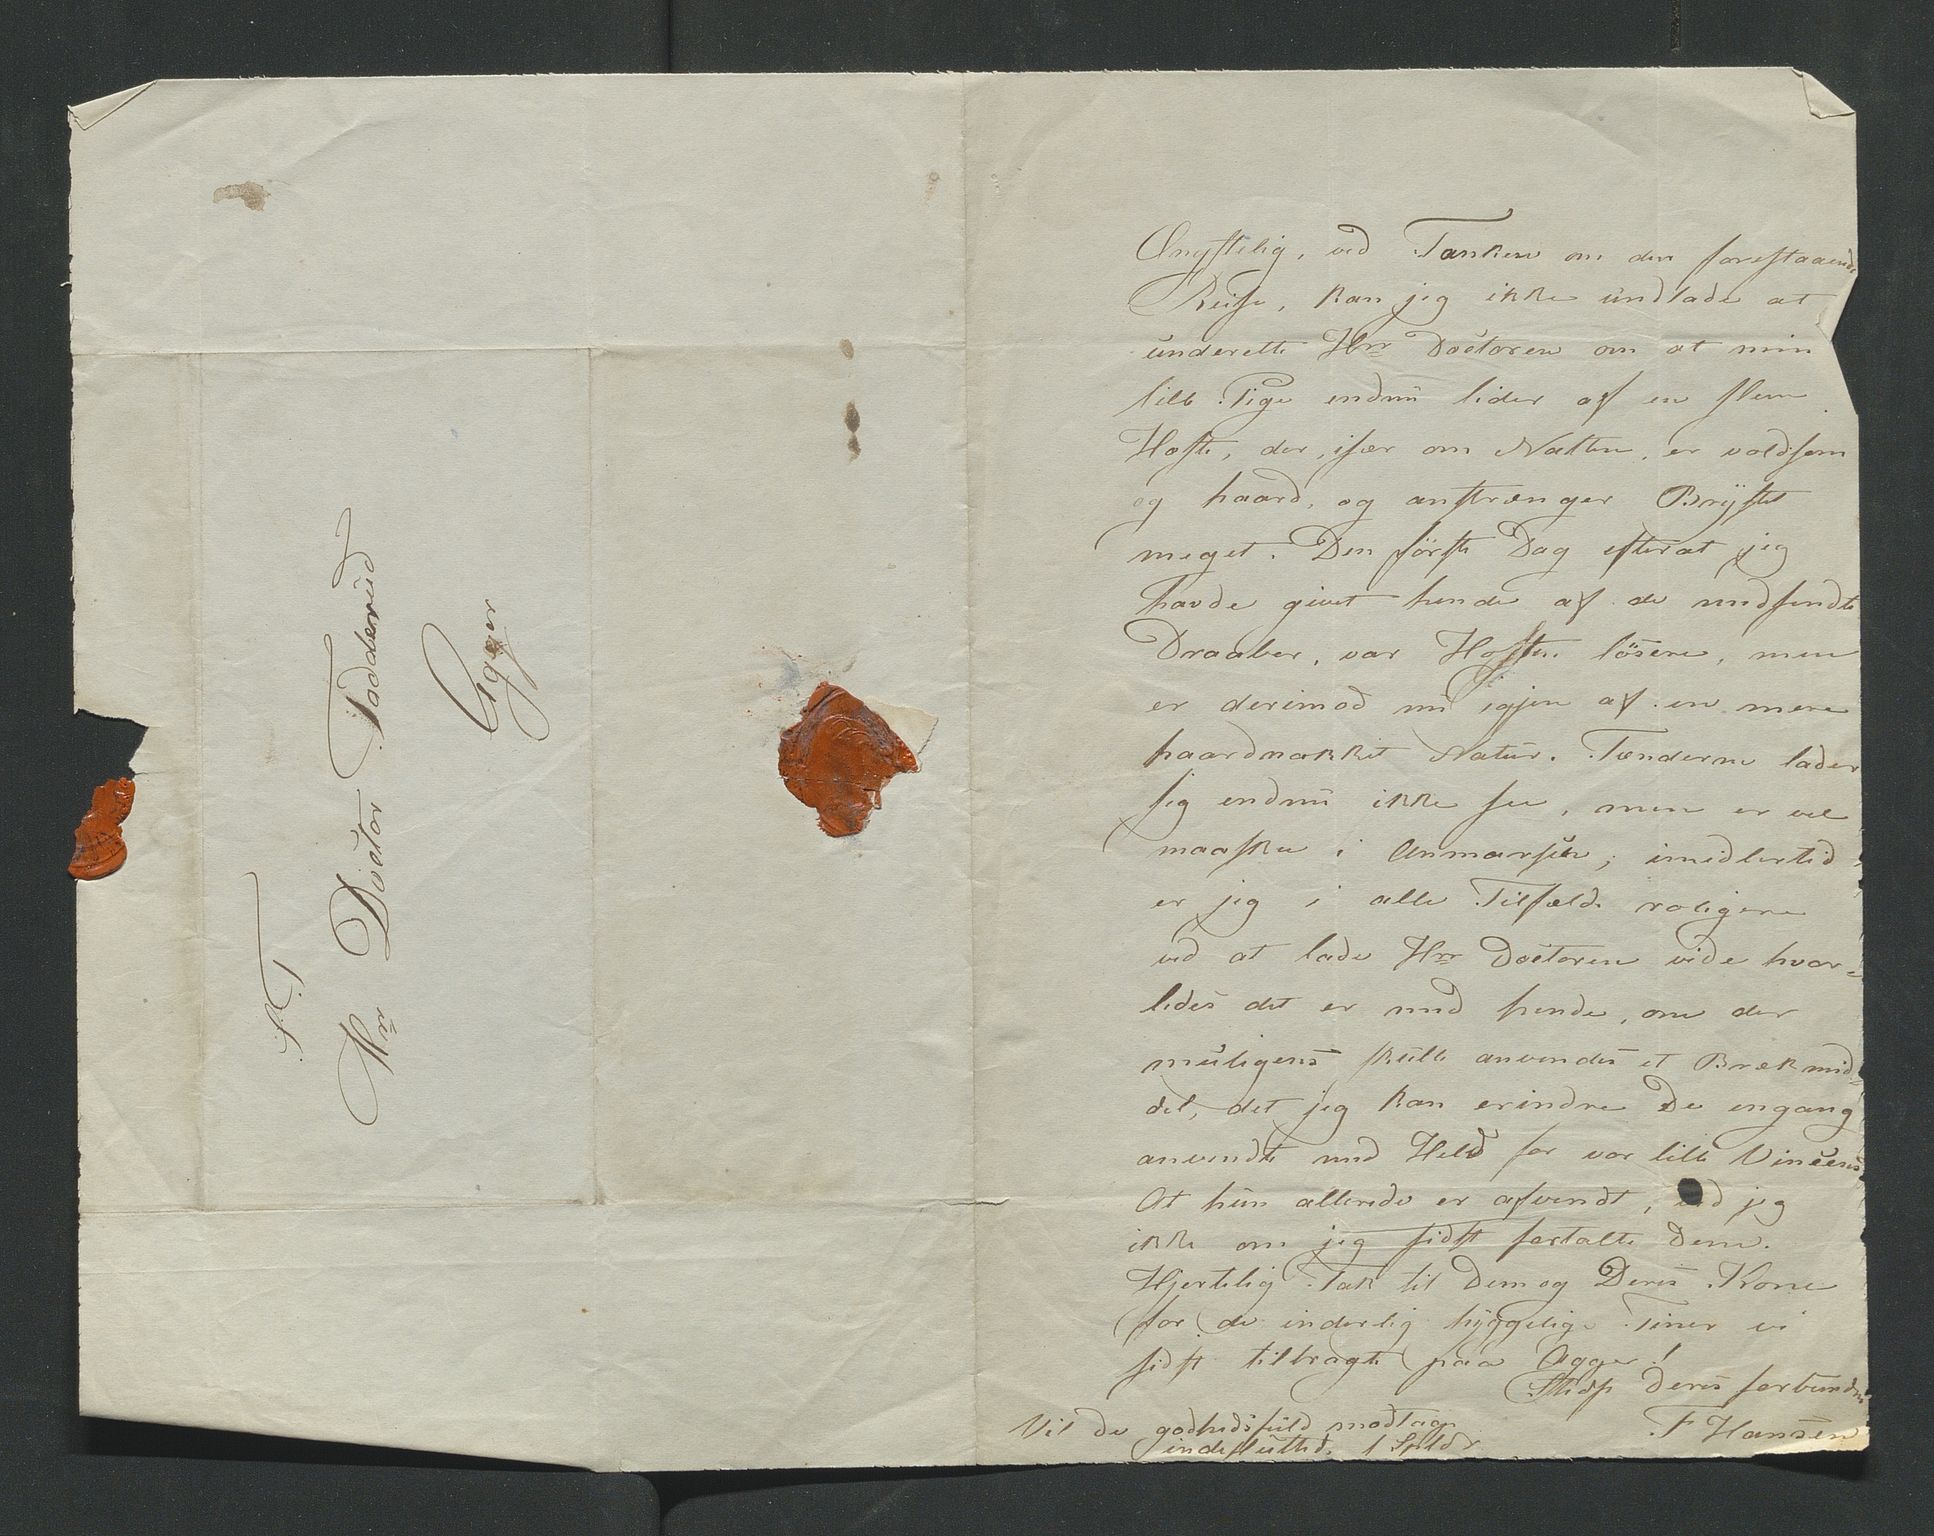 S. T.
Hrr Doctor Fadderud
Agger
Ængstelig, ved Tanken om den forestaaende
Reise, kan jeg ikke undlade at
underette Hrr Doctoren om at min
lille Pige endnu lider af en slem
Hoste, der, især om Natten, er voldsom
og haard, og anstrænger Brystet
meget. Den første Dag efterat jeg
havde givet hende af de nedsendte
Draaber, var Hosten løsere, men
er derimod nu igjen af en mere
haardnakket Natur. Tænderne lader
sig endnu ikke see, men er vel
maaskee i Anmarsch; imidlertid
er jeg i alle Tilfælde roligere
ved at lade Hrr Doctoren vide hvor-
ledes det er med hende, om der
muligens skulle anvendes et Brækmid-
del, det jeg kan erindre De engang
anvendte med Held for vor lille Vincens.
At hun allerede er afvendt, ved jeg
ikke om jeg sidst fortalte Dem.
Hjertelig Tak til Dem og Deres Kone
for de inderlig hyggelige Timer vi
sidst tilbragte paa Agger!
Deres forbundne
F Hansen
Vil De godhedsfuld modtage
indesluttede 1 Spldr